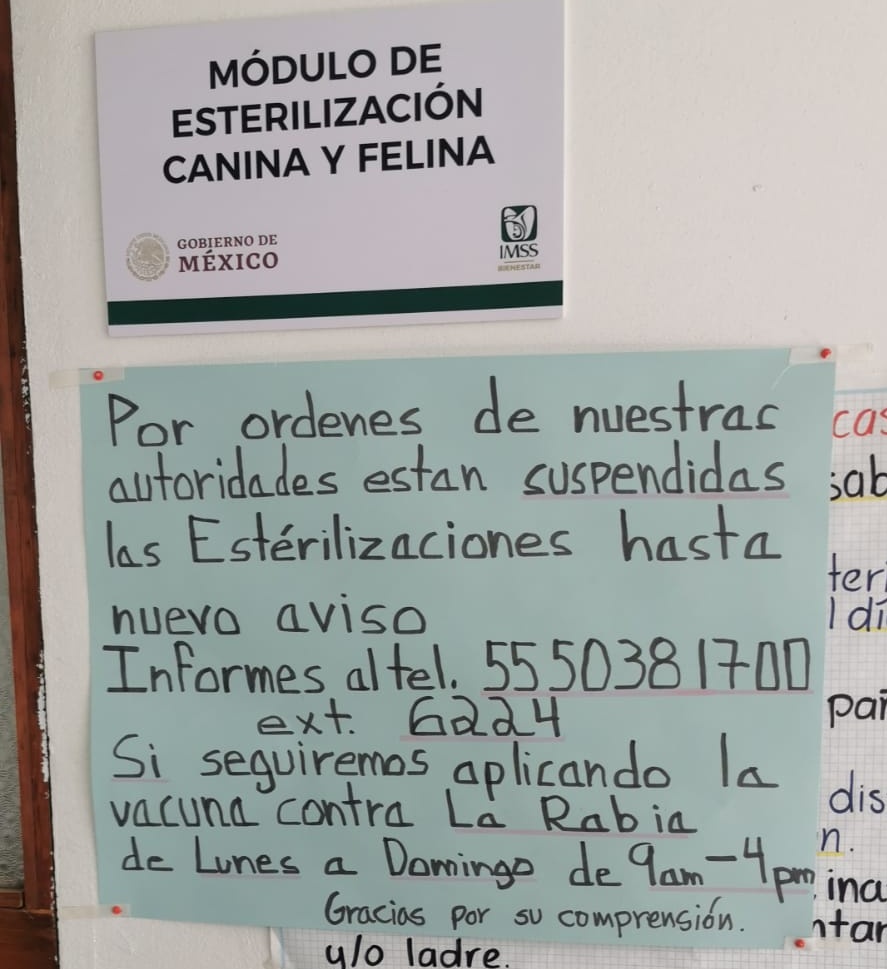 MÓDULO DE
ESTERILIZACIÓN
CANINA Y FELINA
GOBIERNO DE
MÉXICO
IMSS
BIENESTAR
Por ordenes de nuestras
autoridades estan suspendidas
las Estérilizaciones hasta
nuevo aviso
Informes al tel. 5550381700
ext. 6224
Si seguiremos aplicando la
vacuna contra La Rabia
de Lunes a Domingo de 9am-4pm
Gracias por su comprensión.
y/o ladre.